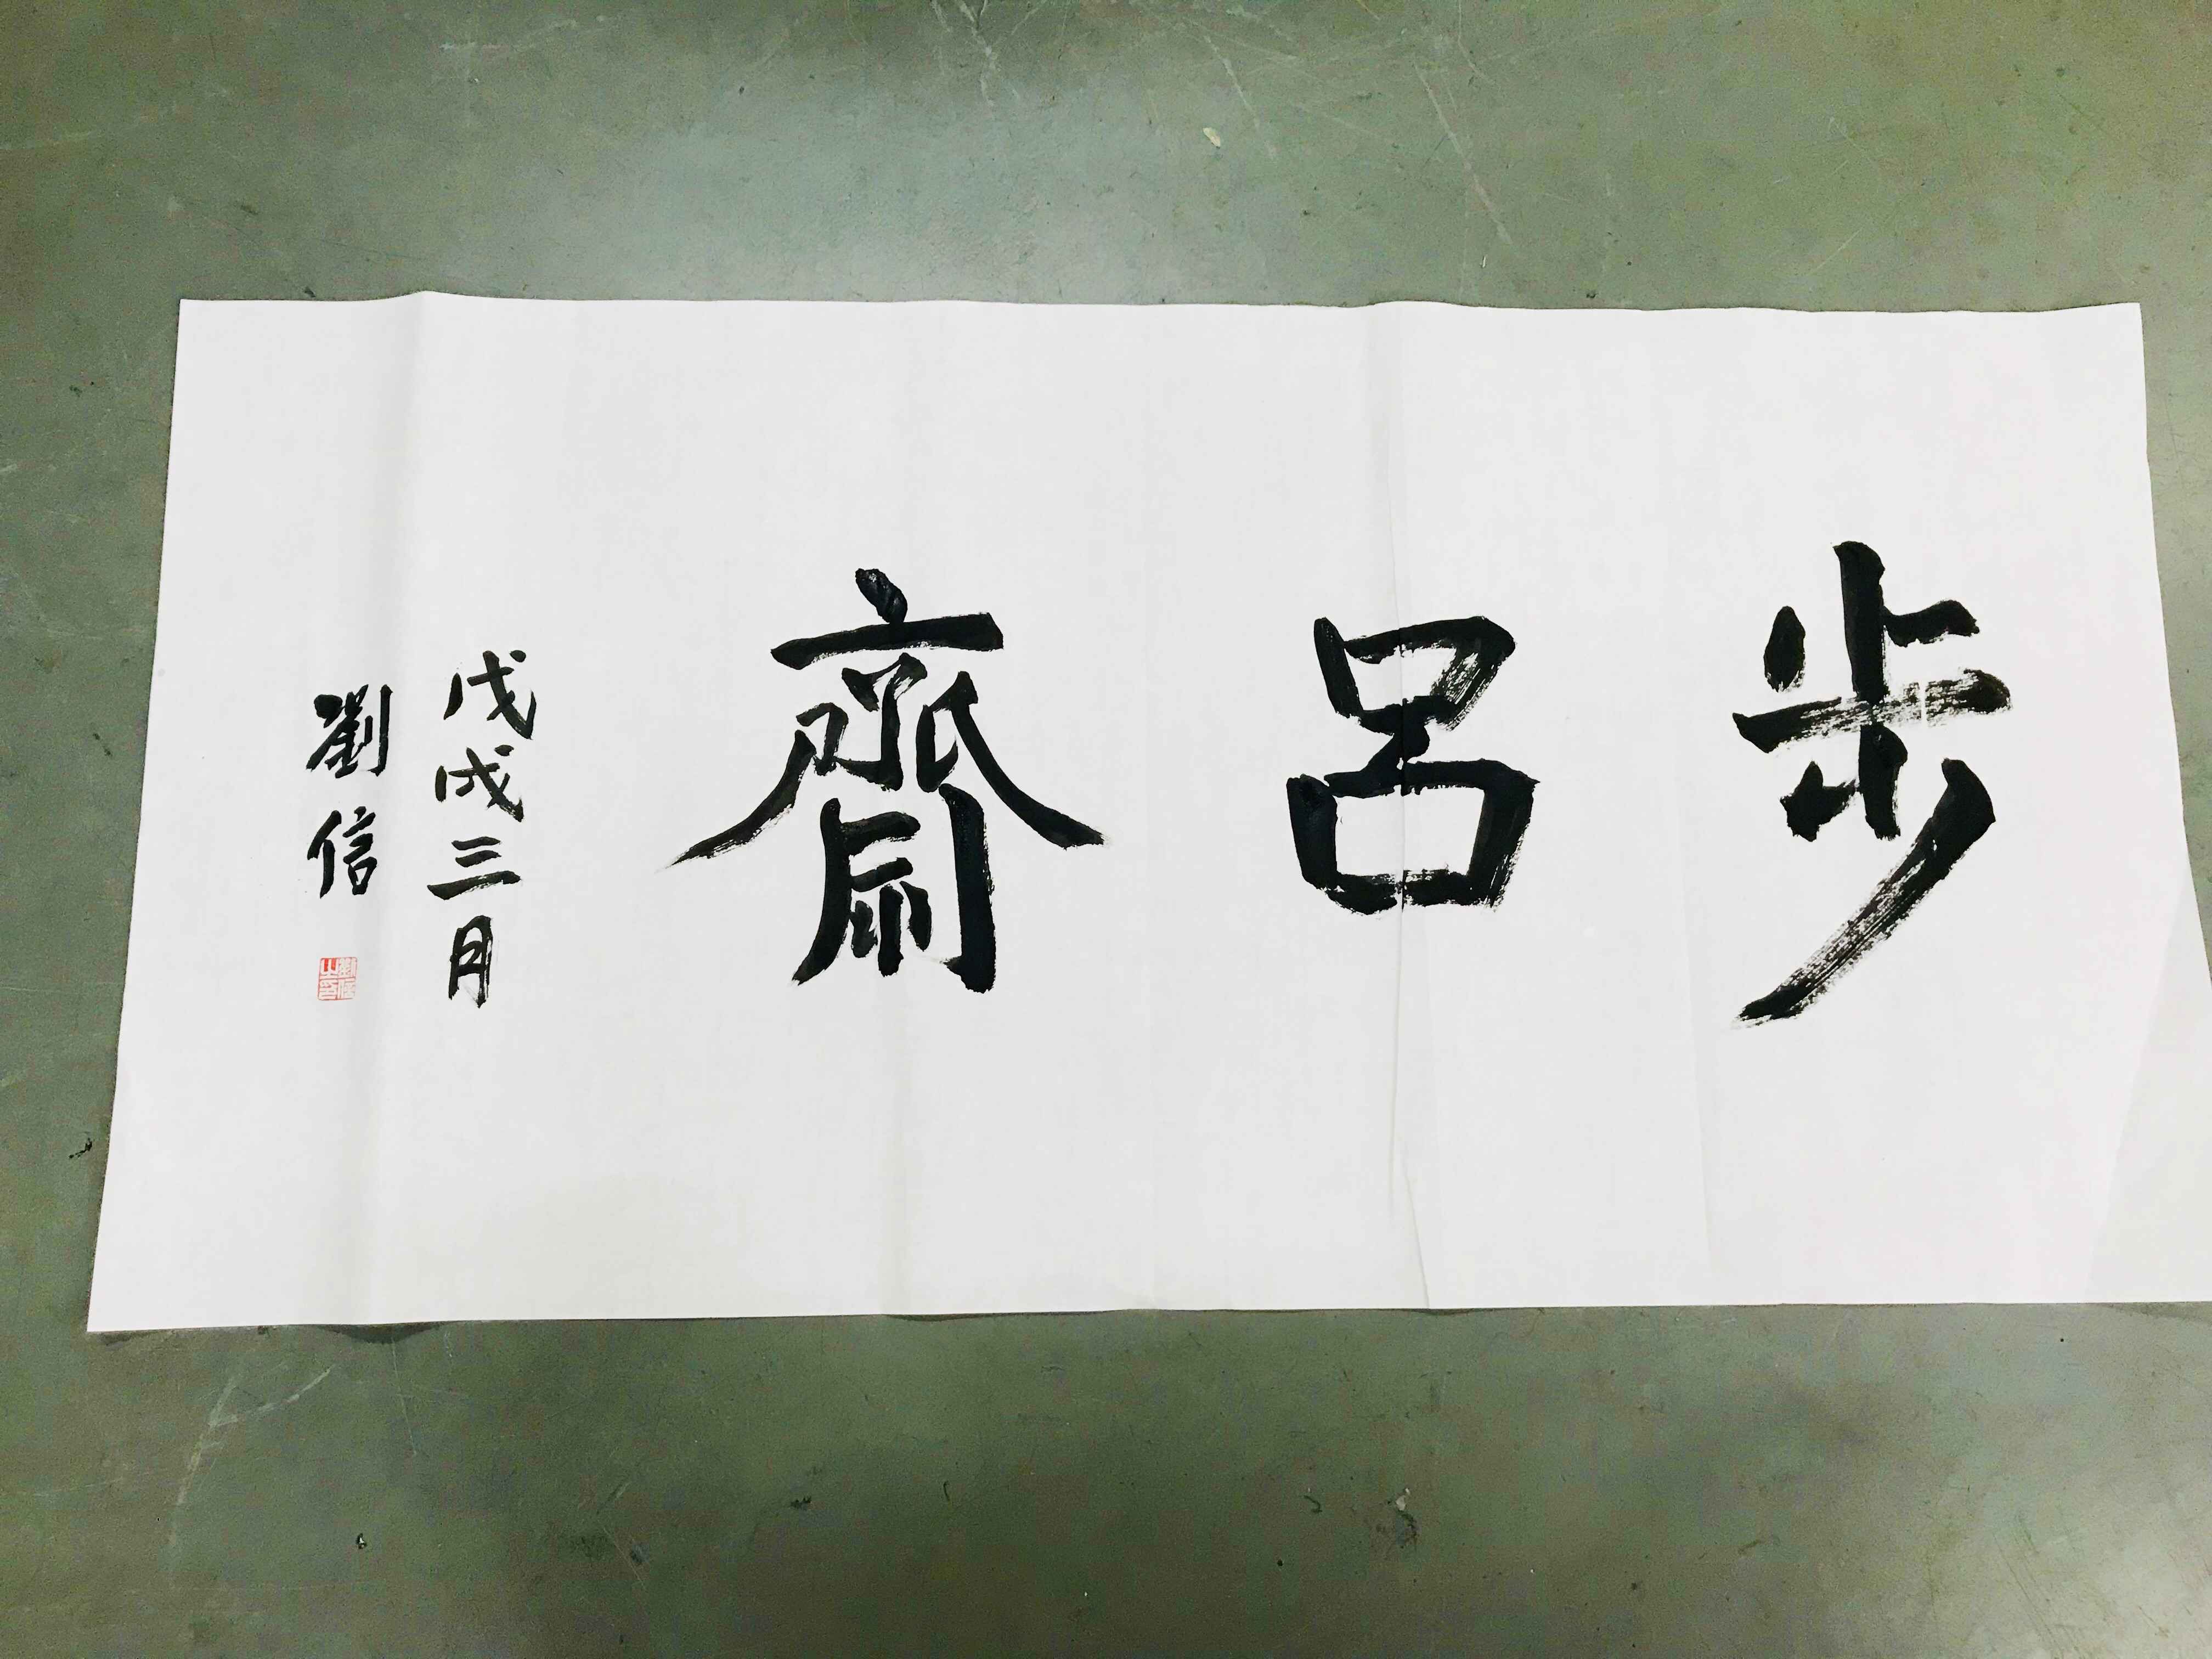 步呂齋
戊戌三月
劉信